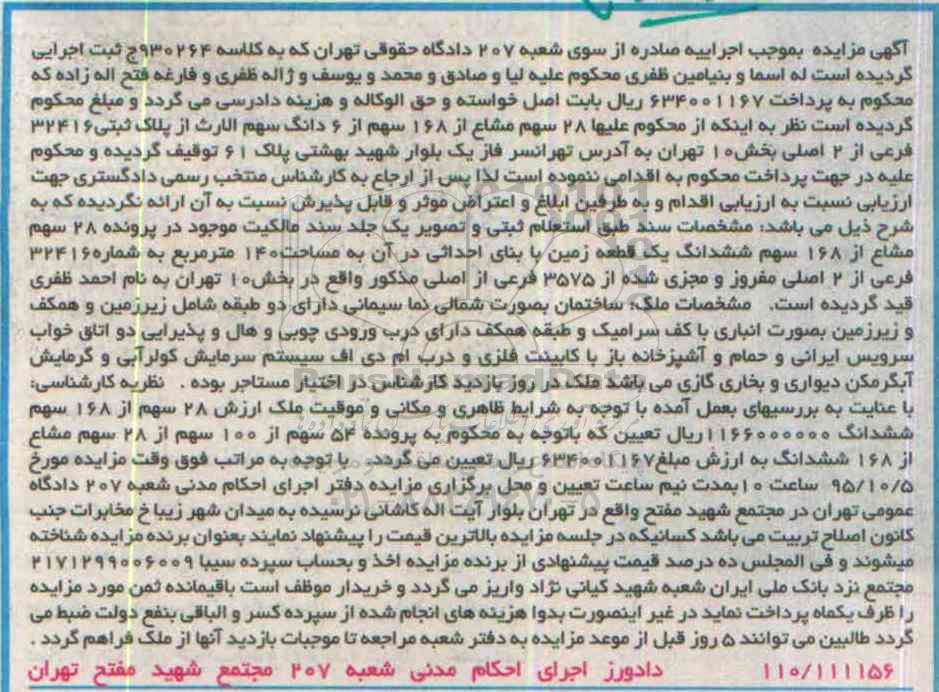 آگهی مزایده بموجب اجراییه صادره از سوی شعبه ۲۰۷ دادگاه حقوقی تهران که به کلاسه ۹۳۰۲۶۴ج ثبت اجرایی
گردیده است له اسما و بنیامین ظفری محکوم علیه لیا و صادق و محمد و یوسف و ژاله ظفری و فارغه فتح اله زاده که
محکوم به پرداخت ۶۳۴۰۰۱۱۶۷ ریال بابت اصل خواسته و حق الوکاله و هزینه دادرسی می گردد و مبلغ محکوم
گردیده است نظر به اینکه از محکوم علیها ۲۸ سهم مشاع از ۱۶۸ سهم از ۶ دانگ سهم الارث از پلاک ثبتی۳۲۴۱۶
فرعی از ۲ اصلی بخش۱۰ تهران به آدرس تهرانسر فاز یک بلوار شهید بهشتی پلاک ۶۱ توقیف گردیده و محکوم
علیه در جهت پرداخت محکوم به اقدامی ننموده است لذا پس از ارجاع به کارشناس منتخب رسمی دادگستری جهت
ارزیابی نسبت به ارزیابی اقدام و به طرفین ابلاغ و اعتراض موثر و قابل پذیرش نسبت به آن ارائه نگردیده که به
شرح ذیل می باشد: مشخصات سند طبق استعلام ثبتی و تصویر یک جلد سند مالکیت موجود در پرونده ۲۸ سهم
مشاع از ۱۶۸ سهم ششدانگ یک قطعه زمین با بنای احداثی در آن به مساحت۱۴۰ مترمربع به شماره۳۲۴۱۶
فرعی از ۲ اصلی مفروز و مجزی شده از ۳۵۷۵ فرعی از اصلی مذکور واقع در بخش۱۰ تهران به نام احمد ظفری
قید گردیده است. مشخصات ملک: ساختمان بصورت شمالی نما سیمانی دارای دو طبقه شامل زیرزمین و همکف
و زیرزمین بصورت انباری با کف سرامیک و طبقه همکف دارای درب ورودی چوبی و هال و پذیرایی دو اتاق خواب
سرویس ایرانی و حمام و آشپزخانه باز با کابینت فلزی و درب ام دی اف سیستم سرمایش کولرآبی و گرمایش
آبگرمکن دیواری و بخاری گازی می باشد ملک در روز بازدید کارشناس در اختیار مستاجر بوده . نظریه کارشناسی:
با عنایت به بررسیهای بعمل آمده با توجه به شرایط ظاهری و مکانی و موقیت ملک ارزش ۲۸ سهم از ۱۶۸ سهم
ششدانگ ۱۱۶۶۰۰۰۰۰۰ریال تعیین که باتوجه به محکوم به پرونده ۵۴ سهم از ۱۰۰ سهم از ۲۸ سهم مشاع
از ۱۶۸ ششدانگ به ارزش مبلغ۶۳۴۶۰۰۱۱۶۷ ریال تعیین می گردد. با توجه به مراتب فوق وقت مزایده مورخ
۹۵/۱۰/۵ ساعت ۱۰بمدت نیم ساعت تعیین و محل برگزاری مزایده دفتر اجرای احکام مدنی شعبه ۲۰۷ دادگاه
عمومی تهران در مجتمع شهید مفتح واقع در تهران بلوار آیت اله کاشانی نرسیده به میدان شهر زیبا خ مخابرات جنب
کانون اصلاح تربیت می باشد کسانیکه در جلسه مزایده بالاترین قیمت را پیشنهاد نمایند بعنوان برنده مزایده شناخته
میشوند و فی المجلس ده درصد قیمت پیشنهادی از برنده مزایده اخذ و بحساب سپرده سیبا ۲۱۷۱۲۹۹۰۰۶۰۰۹
مجتمع نزد بانک ملی ایران شعبه شهید کیانی نژاد واریز می گردد و خریدار موظف است باقیمانده ثمن مورد مزایده
را ظرف یکماه پرداخت نماید در غیر اینصورت بدوا هزینه های انجام شده از سپرده کسر و الباقی بنفع دولت ضبط می
گردد طالبین می توانند ۵ روز قبل از موعد مزایده به دفتر شعبه مراجعه تا موجبات بازدید آنها از ملک فراهم گردد .
۱۱۰/۱۱۱۱۵۶ دادورز اجرای احکام مدنی شعبه ۲۰۷ مجتمع شهید مفتح تهران